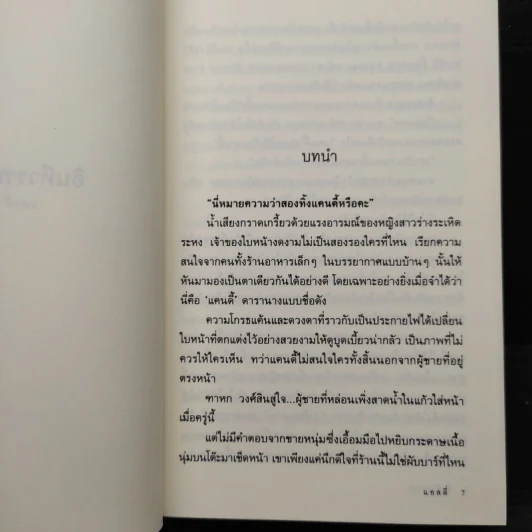 บทนำ
"นี่หมายความว่าสองทิ้งแคนดี้หรือคะ"
น้ำเสียงกราดเกรี้ยวด้วยแรงอารมณ์ของหญิงสาวร่างระเหิด
ระหง เจ้าของใบหน้างดงามไม่เป็นสองรองใครที่ไหน เรียกความ
สนใจจากคนทั้งร้านอาหารเล็กๆ ในบรรยากาศแบบบ้านๆ นั้นให้
หันมามองเป็นตาเดียวกันได้อย่างดี โดยเฉพาะอย่างยิ่งเมื่อจำได้ว่า
นี่คือ 'แคนดี้' ดารานางแบบชื่อดัง
ความโกรธแค้นและดวงตาที่ราวกับเป็นประกายไฟได้เปลี่ยน
ใบหน้าที่ตกแต่งไว้อย่างสวยงามให้ดูบูดเบี้ยวน่ากลัว เป็นภาพที่ไม่
ควรให้ใครเห็น ทว่าแคนดี้ไม่สนใจใครทั้งสิ้นนอกจากผู้ชายที่อยู่
ตรงหน้า
ฑาหก วงศ์สินสู่ใจ...ผู้ชายที่หล่อนเพิ่งสาดน้ำในแก้วใส่หน้า
เมื่อครู่นี้
แต่ไม่มีคำตอบจากชายหนุ่มซึ่งเอื้อมมือไปหยิบกระดาษเนื้อ
นุ่มบนโต๊ะมาเช็ดหน้า เขาเพียงแค่นึกดีใจที่ร้านนี้ไม่ใช่ผับบาร์ที่ไหน
แอลลี่ 7